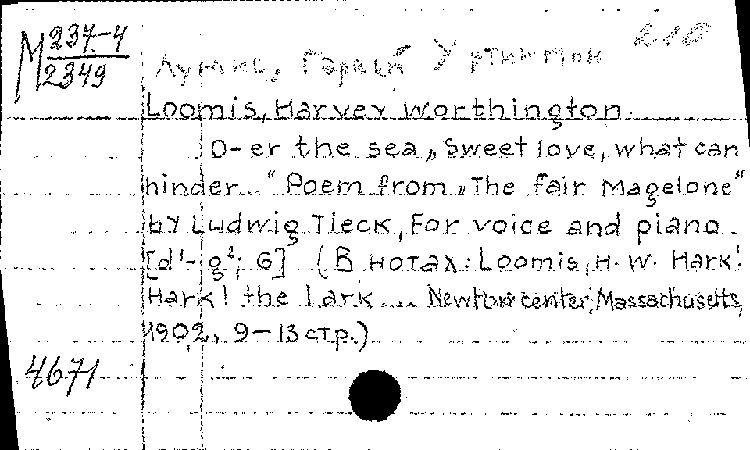 М 237-4
2349
Лумис, Гарвей Уртингтон 210
Loomis, Harvey Worthington.
O-er the sea „Sweet love, what can
hinder..." Poem from „The fair Magelone"
by Ludwig Tieck, For voice and piano.
[d¹-g²; G] (В нотах: Loomis, H. W. Hark!
Hark! the lark... Newton center, Massachusetts,
1902, 9-13 стр.)
4671